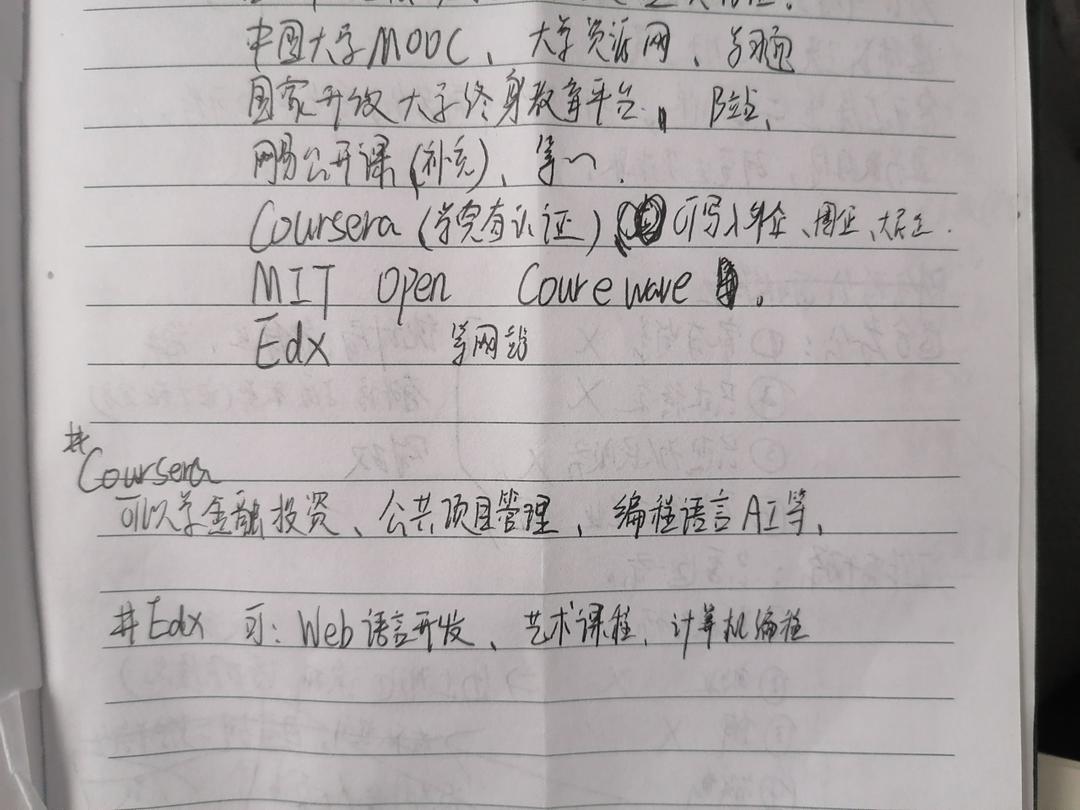 中国大学MOOC、大学资源网、学习通
国家开放大学终身教育平台、B站、
网易公开课(补充)、等
Coursera (学完有认证) 可写入外企、国企、大厂
MIT Open Coureware.
Edx 等网站
#
Coursera
可以学金融投资、公共项目管理、编程语言AI等、
#Edx 可: Web语言开发、艺术课程、计算机编程